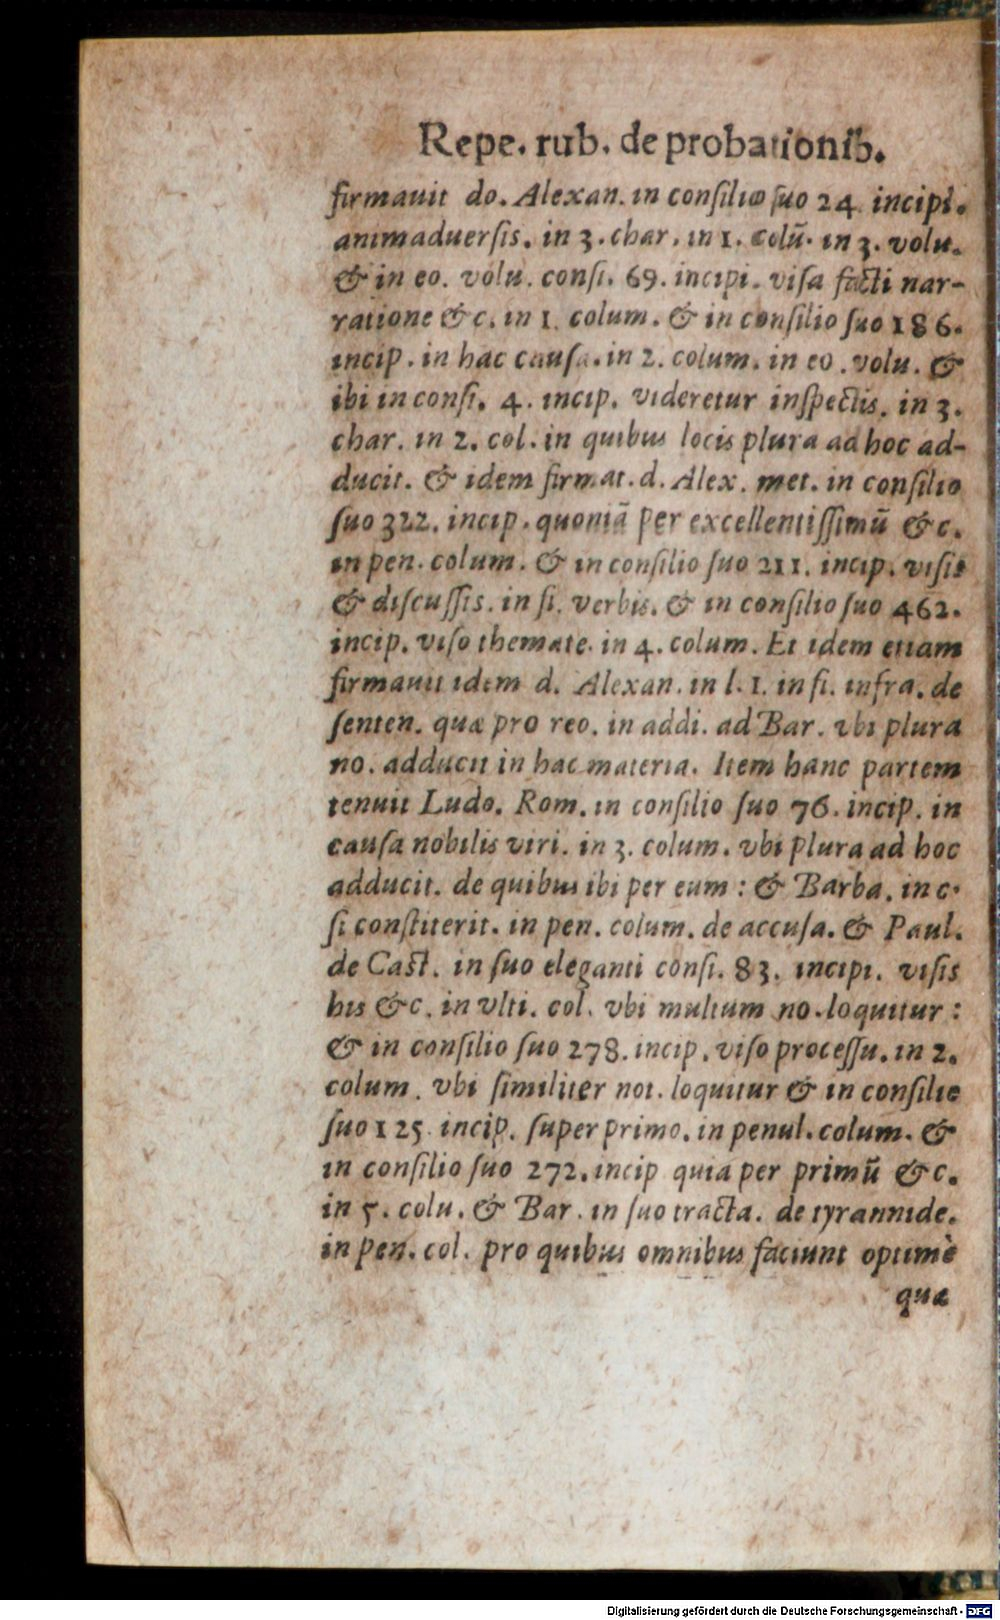 Repe. rub. de probationib.
firmauit do. Alexan. in consilio suo 24. incipi.
animaduersis. in 3. char. in 1. colū. in 3. volu.
& in eo. volu. consi. 69. incipi. visa facti nar-
ratione &c. in 1. colum. & in consilio suo 186.
incip. in hac causa. in 2. colum. in eo. volu. &
ibi in consi. 4. incip. videretur inspectis. in 3.
char. in 2. col. in quibus locis plura ad hoc ad-
ducit. & idem firmat. d. Alex. met. in consilio
suo 322. incip. quoniā per excellentissimū &c.
in pen. colum. & in consilio suo 211. incip. visis
& discussis. in fi. verbis. & in consilio suo 462.
incip. viso themate. in 4. colum. Et idem etiam
firmauit idem d. Alexan. in l. 1. in fi. infra. de
senten. quæ pro reo. in addi. ad Bar. vbi plura
no. adducit in hac materia. Item hanc partem
tenuit Ludo. Rom. in consilio suo 76. incip. in
causa nobilis viri. in 3. colum. vbi plura ad hoc
adducit. de quibus ibi per eum : & Barba. in c.
si constiterit. in pen. colum. de accusa. & Paul.
de Cast. in suo eleganti consi. 83. incipi. visis
his &c. in vlti. col. vbi multum no. loquitur :
& in consilio suo 278. incip. viso processu. in 2.
colum. vbi similiter not. loquitur & in consilie
suo 125. incip. super primo. in penul. colum. &
in consilio suo 272. incip quia per primū &c.
in 5. colu. & Bar. in suo tracta. de tyrannide.
in pen. col. pro quibus omnibus faciunt optimè
quæ
Digitalisierung gefördert durch die Deutsche Forschungsgemeinschaft - DFG